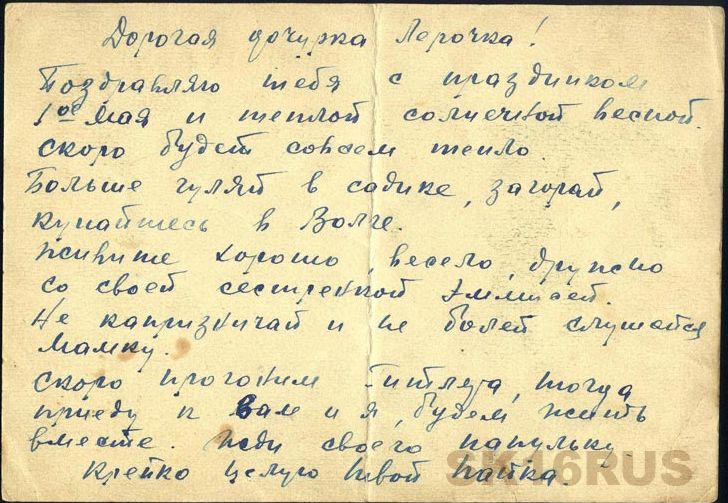 Дорогая дочурка Лерочка!
Поздравляю тебя с праздником
1ое Мая и теплой солнечной весной.
скоро будет совсем тепло
Больше гуляй в садике, загорай,
купайтесь в Волге.
живите хорошо, весело, дружно
со своей сестренкой Эммисей.
Не капризничай и не болей слушайся
мамку.
скоро прогоним Гитлера, тогда
приеду к вам и я, будем жить
вместе. жди своего папульку.
Крепко целую твой папка.
SK16RUS